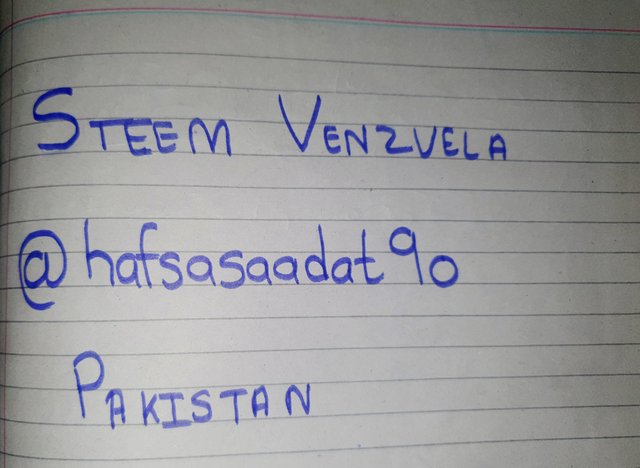 STEEM VENZVELA
@hafsasaadat90
PAKISTAN